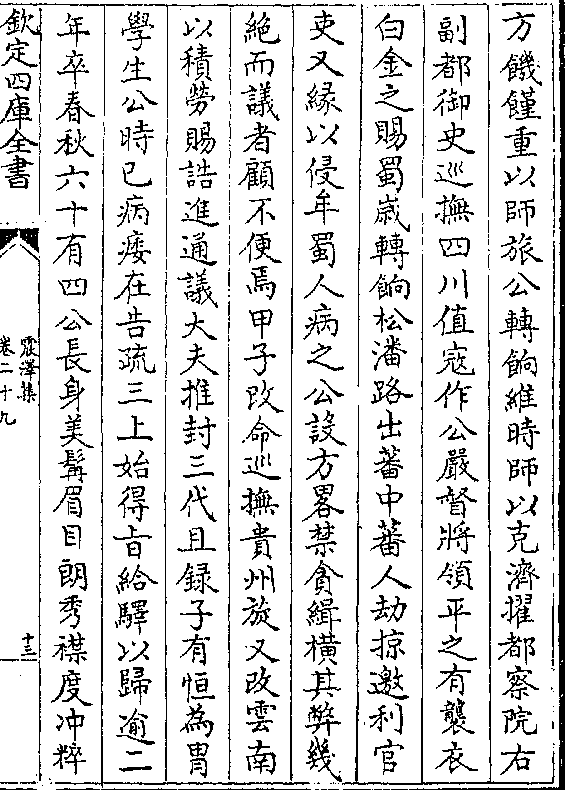 方饑饉重以師旅公轉餉維時師以克濟擢都察院右
副都御史巡撫四川值寇作公嚴督將領平之有襲衣
白金之賜蜀歲轉餉松潘路出蕃中蕃人劫掠邀利官
吏又緣以侵牟蜀人病之公設方畧禁貪緝橫其弊幾
絶而議者顧不便焉甲子改命巡撫貴州旋又改雲南
以積勞賜誥進通議大夫推封三代且録子有恒為胄
學生公時已病痿在告疏三上始得旨給驛以歸逾二
年卒春秋六十有四公長身美髯眉目朗秀襟度冲粹
欽定四庫全書
震澤集
卷二十九
十三